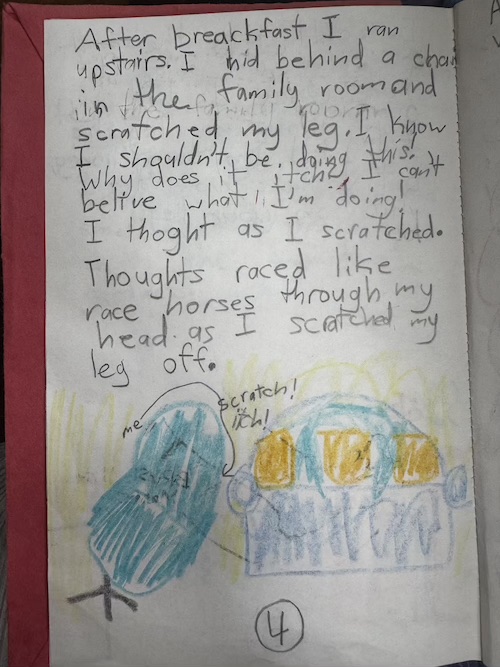 After breackfast I ran
upstairs. I hid behind a chai
in the family room and
scratched my leg. I know
I shouldn't be doing this.
Why does it itch? I can't
belive what I'm doing!
I thoght as I scratched.
Thoughts raced like
race horses through my
head as I scratched my
leg off.
scratch!
itch!
me
4